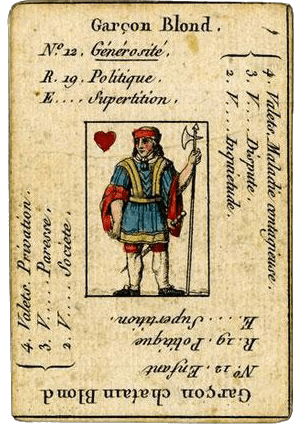 Garçon Blond.
Nº 12. Générosité.
R. 19. Politique.
E.... Supertition.
4. Valets. Maladie contagieuse.
3. V.... Dispute
2. V.... Inquietude.
4. Valets. Privation.
3. V.... Paresse.
2. V.... Societe.
Garçon chatain Blond
Nº 12. Enfant
R. 19. Politique
E.... Supertition.